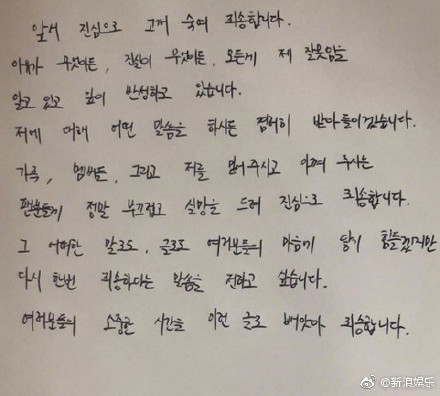 앞서 진심으로 고개 숙여 죄송합니다.
이유가 무엇이든, 진실이 무엇이든, 모든게 제 잘못임을
알고 있고 깊이 반성하고 있습니다.
저에 대해 어떤 말씀을 하시든 겸허히 받아들이겠습니다.
가족, 멤버들, 그리고 저를 믿어주시고 아껴 주시는
팬분들께 정말 부끄럽고 실망을 드려 진심으로 죄송합니다.
그 어떠한 말로도, 글로도 여러분들의 마음에 닿기 힘들겠지만
다시 한번 죄송하다는 말씀을 전하고 싶습니다.
여러분들의 소중한 시간을 이런 글로 빼앗아 죄송합니다.
@新浪娱乐